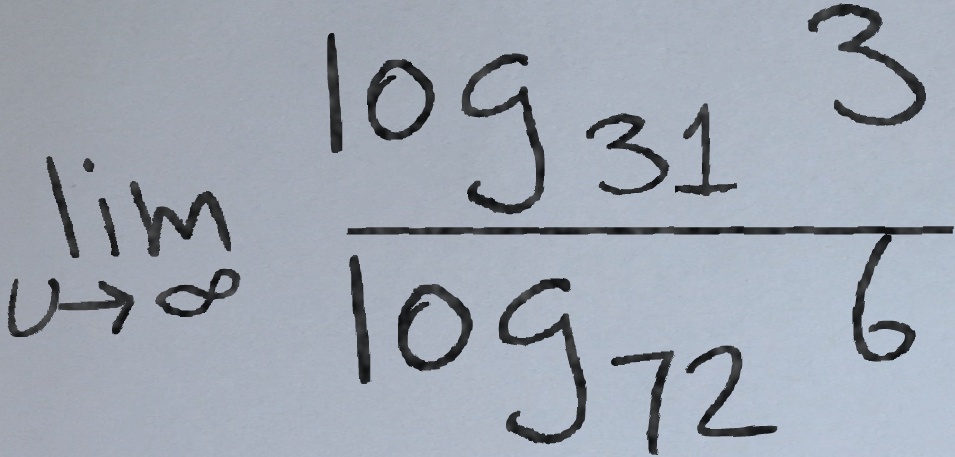 \lim_{u \to \infty} \frac{\log_{31} 3}{\log_{72} 6}